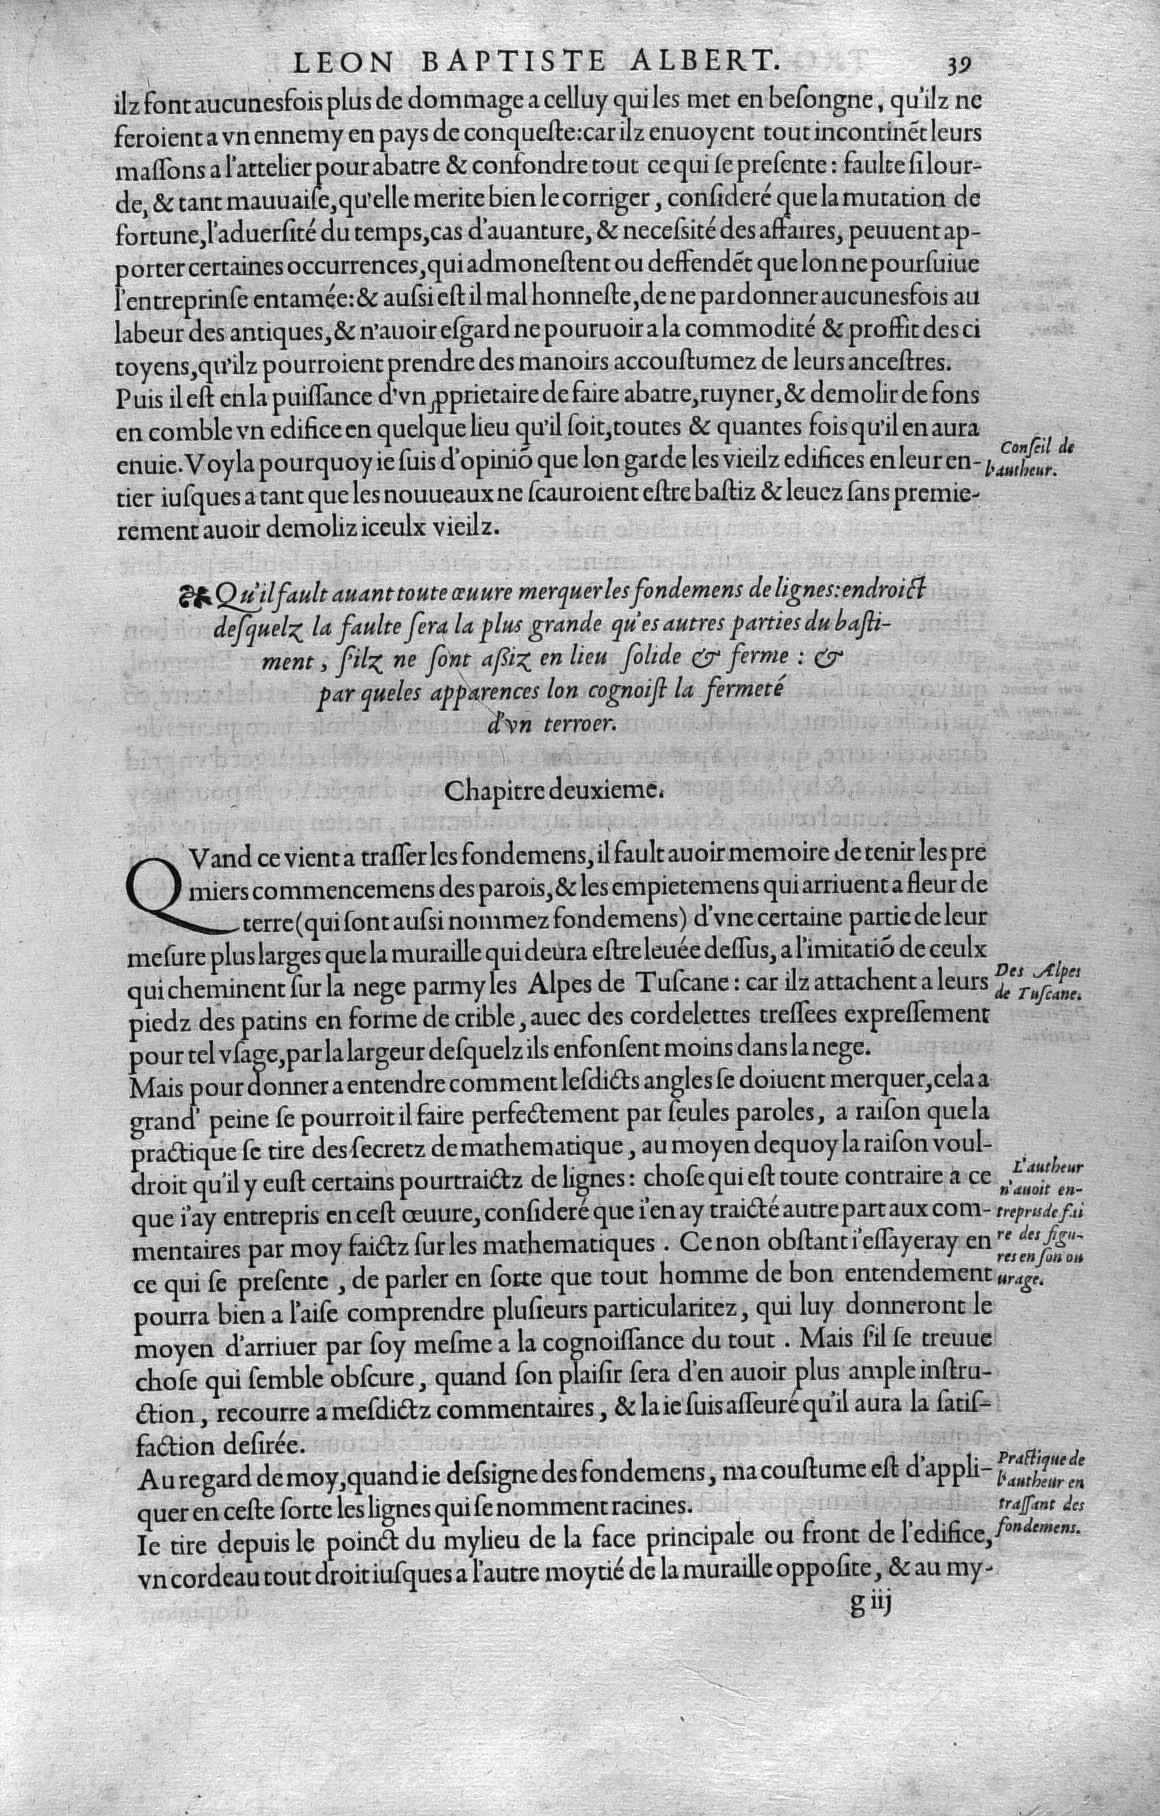 LEON BAPTISTE ALBERT. 39
ilz font aucunesfois plus de dommage a celluy qui les met en beſongne, qu'ilz ne
feroient a vn ennemy en pays de conqueſte: car ilz enuoyent tout incontinēt leurs
maſſons a l'attelier pour abatre & confondre tout ce qui ſe preſente: faulte ſi lour-
de, & tant mauuaiſe, qu'elle merite bien le corriger, conſideré que la mutation de
fortune, l'aduerſité du temps, cas d'auanture, & neceſsité des affaires, peuuent ap-
porter certaines occurrences, qui admoneſtent ou deffendēt que lon ne pourſuiue
l'entreprinſe entamée: & auſsi eſt il mal honneſte, de ne pardonner aucunesfois au
labeur des antiques, & n'auoir eſgard ne pouruoir a la commodité & proffit des ci
toyens, qu'ilz pourroient prendre des manoirs accouſtumez de leurs anceſtres.
Puis il eſt en la puiſſance d'vn ꝓprietaire de faire abatre, ruyner, & demolir de fons
en comble vn edifice en quelque lieu qu'il ſoit, toutes & quantes fois qu'il en aura
enuie. Voyla pourquoy ie ſuis d'opiniō que lon garde les vieilz edifices en leur en-
tier iuſques a tant que les nouueaux ne ſcauroient eſtre baſtiz & leuez ſans premie-
rement auoir demoliz iceulx vieilz.
Conſeil de
l'autheur.
❧ Qu'il fault auant toute œuure merquer les fondemens de lignes: endroict
deſquelz la faulte ſera la plus grande qu'es autres parties du baſti-
ment, ſ'ilz ne ſont aſsiz en lieu ſolide & ferme: &
par queles apparences lon cognoiſt la fermeté
d'vn terroer.
Chapitre deuxieme.
QVand ce vient a traſſer les fondemens, il fault auoir memoire de tenir les pre
miers commencemens des parois, & les empietemens qui arriuent a fleur de
terre (qui ſont auſsi nommez fondemens) d'vne certaine partie de leur
meſure plus larges que la muraille qui deura eſtre leuée deſſus, a l'imitatiō de ceulx
qui cheminent ſur la nege parmy les Alpes de Tuſcane: car ilz attachent a leurs
piedz des patins en forme de crible, auec des cordelettes treſſées expreſſement
pour tel vſage, par la largeur deſquelz ils enfonſent moins dans la nege.
Des Alpes
de Tuſcane.
Mais pour donner a entendre comment leſdicts angles ſe doiuent merquer, cela a
grand' peine ſe pourroit il faire perfectement par ſeules paroles, a raiſon que la
practique ſe tire des ſecretz de mathematique, au moyen dequoy la raiſon voul-
droit qu'il y euſt certains pourtraictz de lignes: choſe qui eſt toute contraire a ce
que i'ay entrepris en ceſt œuure, conſideré que i'en ay traicté autre part aux com-
mentaires par moy faictz ſur les mathematiques. Ce non obſtant i'eſſayeray en
ce qui ſe preſente, de parler en ſorte que tout homme de bon entendement
pourra bien a l'aiſe comprendre pluſieurs particularitez, qui luy donneront le
moyen d'arriuer par ſoy meſme a la cognoiſſance du tout. Mais ſ'il ſe treuue
choſe qui ſemble obſcure, quand ſon plaiſir ſera d'en auoir plus ample inſtru-
ction, recourre a meſdictz commentaires, & la ie ſuis aſſeuré qu'il aura la ſatiſ-
faction deſirée.
L'autheur
n'auoit en-
trepris de fai
re des figu-
res en ſon ou
urage.
Au regard de moy, quand ie deſsigne des fondemens, ma couſtume eſt d'appli-
quer en ceſte ſorte les lignes qui ſe nomment racines.
Ie tire depuis le poinct du mylieu de la face principale ou front de l'edifice,
vn cordeau tout droit iuſques a l'autre moytié de la muraille oppoſite, & au my-
Practique de
l'autheur en
traſſant des
fondemens.
g iij